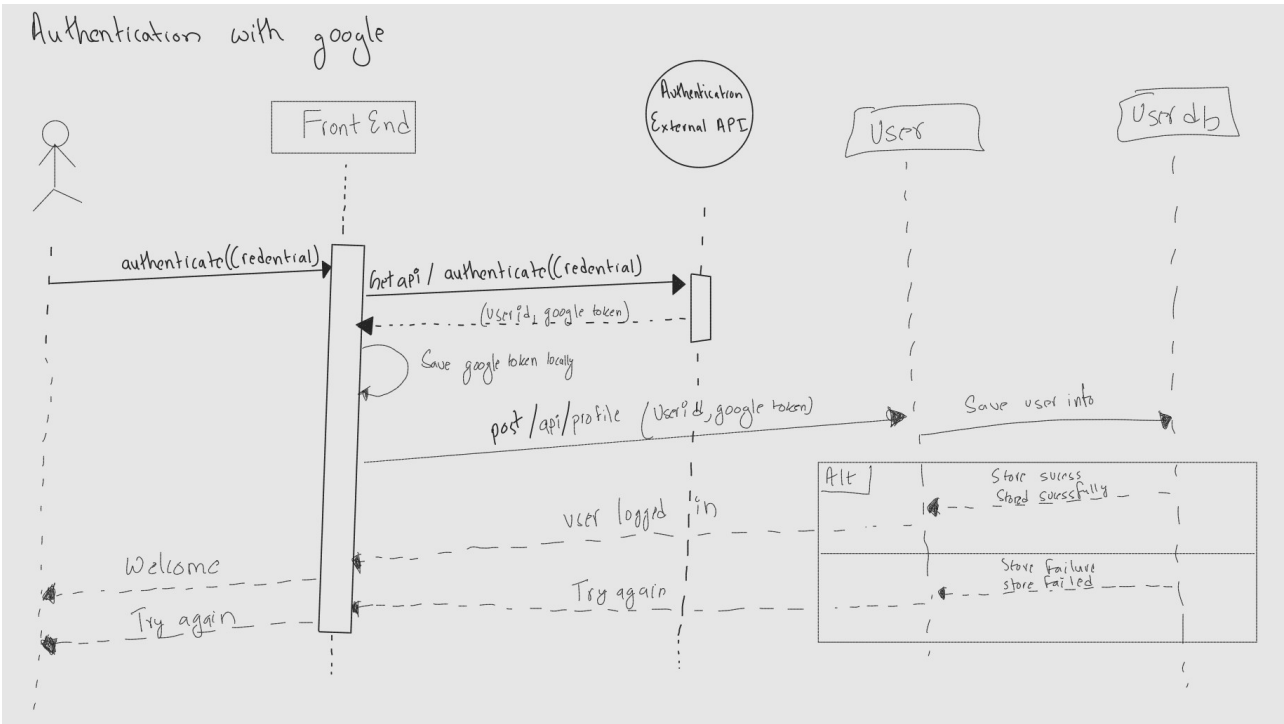 Authentication with google
Front End
Authentication
External API
User
User db
authenticate(Credential)
Get api / authenticate(Credential)
(Userid, google token)
Save google token locally
post /api/profile (Userid, google token)
Save user info
Alt
Store sucess
Stored sucessfully
user logged in
Welcome
Store failure
store failed
Try again
Try again